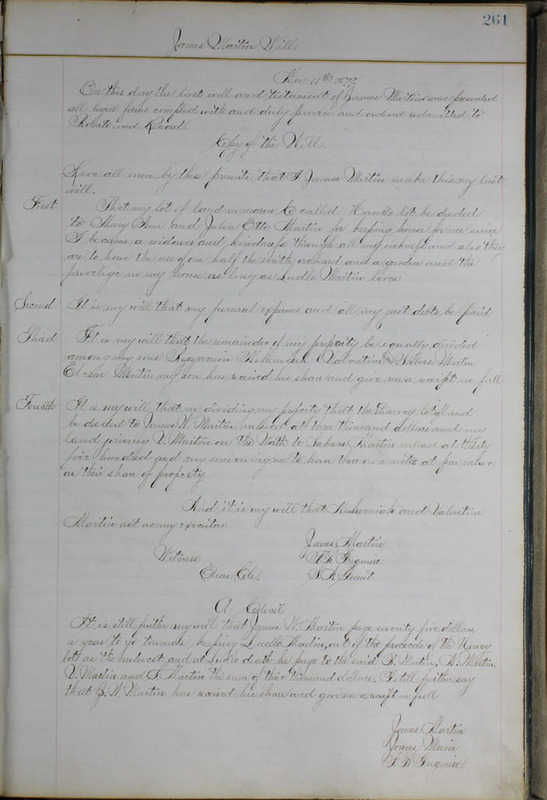 261
James Martin Will
Nov 17th 187
On this day the last will and testament of James Martin was presented
all legal forms complied with and duly proven and ordered admitted to
Probate and Record.
Copy of the Will.
Know all men by this presents that I James Martin make this my last
will.
First That my lot of land in called lot be deeded
to Mary Ann and Julia Etta Martin for keeping house for me since
I became a widower and kindness through all my sickness also they
are to have the use of one half the south orchard and a garden and the
privelige in my house as long as Martin lives
Second It is my will that my funeral expense and all my just debts be paid
Third It is my will that the remainder of my property be equally divided
among my sons Benjamin Nehemiah Valentine & Martin
Martin my son has received his share and give me a receipt in full
Fourth It is my will that in dividing my property that the Harvey lot
be deeded to James W. Martin valued at two thousand dollars and my
land joining V. Martin on the North to Martin valued at thirty
five hundred and my sons to have notes at
on their share of property
And it is my will that Nehemiah and Valentine
Martin act as my executors
James Martin
Witness
Cole S. A. Grant
A Codicil
It is still further my will that James W. Martin pays seventy five dollars
a year to go towards keeping Martin, out of the proceeds of the Harvey
lot as the interest and at death he pays to the said B. Martin, N. Martin
V. Martin and Martin the sum of three thousand dollars. I still further say
that J. W. Martin has received his share and give me a receipt in full
James Martin